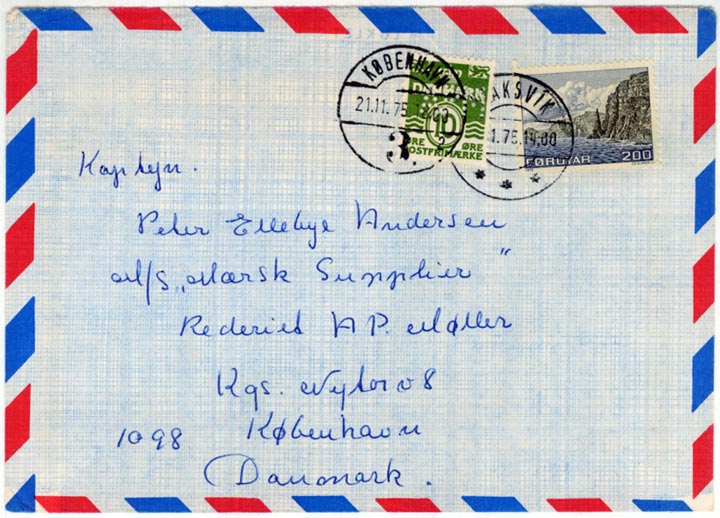 KØBENHAVN
21.11.75
3.
DANMARK
10
ØRE ØRE
POSTFRIMÆRKE
AKSVÍK
1.75.19.00
FØROYAR 200
Kaptejn.
Peter Ellebye Andersen
M/S „Mærsk Supplier"
Rederiet A.P. Møller
Kgs. Nytorv 8
1098 København
Danmark.